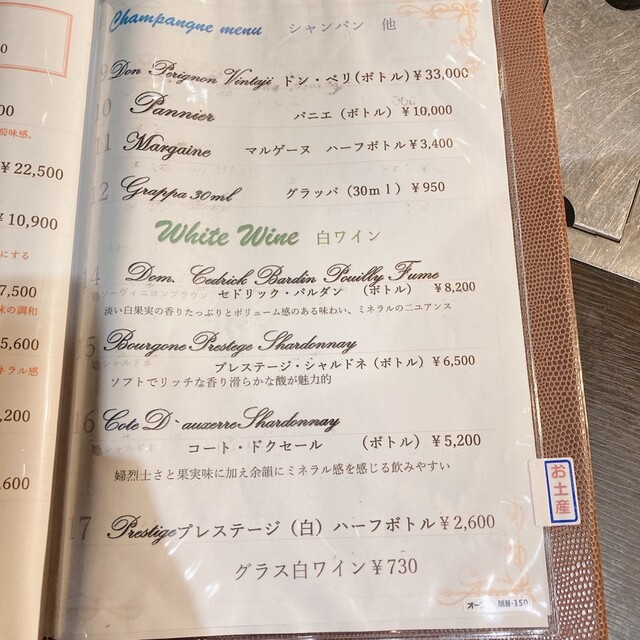 0
00
萄味感。
¥22,500
¥10,900
にする
7,500
味の調和
5,600
ネラル感
,200
,600
Champangne menu シャンパン 他
9 Don Perignon Vintaji ドン・ペリ(ボトル)¥33,000
10 Pannier パニエ(ボトル)¥10,000
11 Margaine マルゲーヌ ハーフボトル¥3,400
12 Grappa 30ml グラッパ(30ml)¥950
White Wine 白ワイン
14 Dom. Cedrick Bardin Pouilly Fume
ソーヴィニヨンブラウン セドリック・バルダン (ボトル) ¥8,200
淡い白果実の香りたっぷりとボリューム感のある味わい、ミネラルの二ユアンス
15 Bourgone Prestege Shardonnay
シャルドネ プレステージ・シャルドネ(ボトル)¥6,500
ソフトでリッチな香り滑らかな酸が魅力的
16 Cote D`auxerre Shardonnay
シャルドネ コート・ドクセール (ボトル)¥5,200
婦烈士さと果実味に加え余韻にミネラル感を感じる飲みやすい
17 Prestigeプレステージ(白)ハーフボトル¥2,600
グラス白ワイン¥730
お土産
MN-150